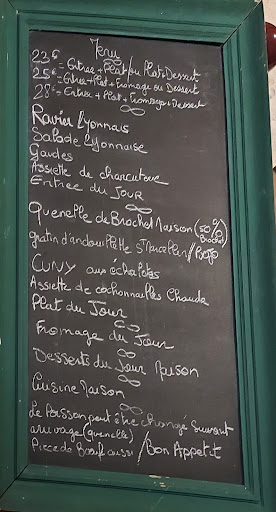 Menu
22€ = Entrée + Plat / ou Plat + Dessert
25€ = Entrée + Plat + Fromage ou Dessert
28€ = Entrée + Plat + Fromage + Dessert
Ravier Lyonnais
Salade Lyonnaise
Gaudes
Assiette de charcuterie
Entrée du Jour
Quenelle de Brochet Maison (50% Brochet)
gratin d'andouillette St Marcellin /
CUNY aux échalotes
Assiette de cochonnailles Chaude
Plat du Jour
Fromage du Jour
Desserts du Jour Maison
Cuisine Maison
Le Poisson peut être changé suivant
arrivage (quenelle)
Piece de Boeuf aussi / Bon Appetit